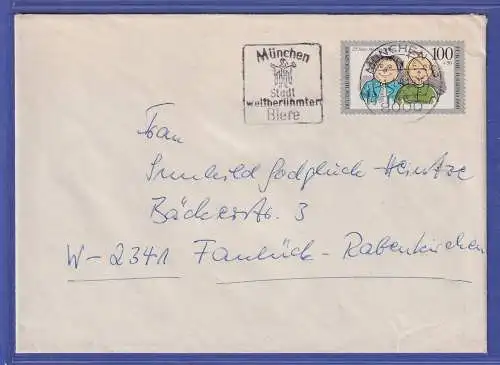 München
Stadt
weltberühmter
Biere
MÜNCHEN
8000
100
Frau
Sunhild Godglück-Heintze
Bäckerstr. 3
W-2341 Faulück-Rabenkirchen